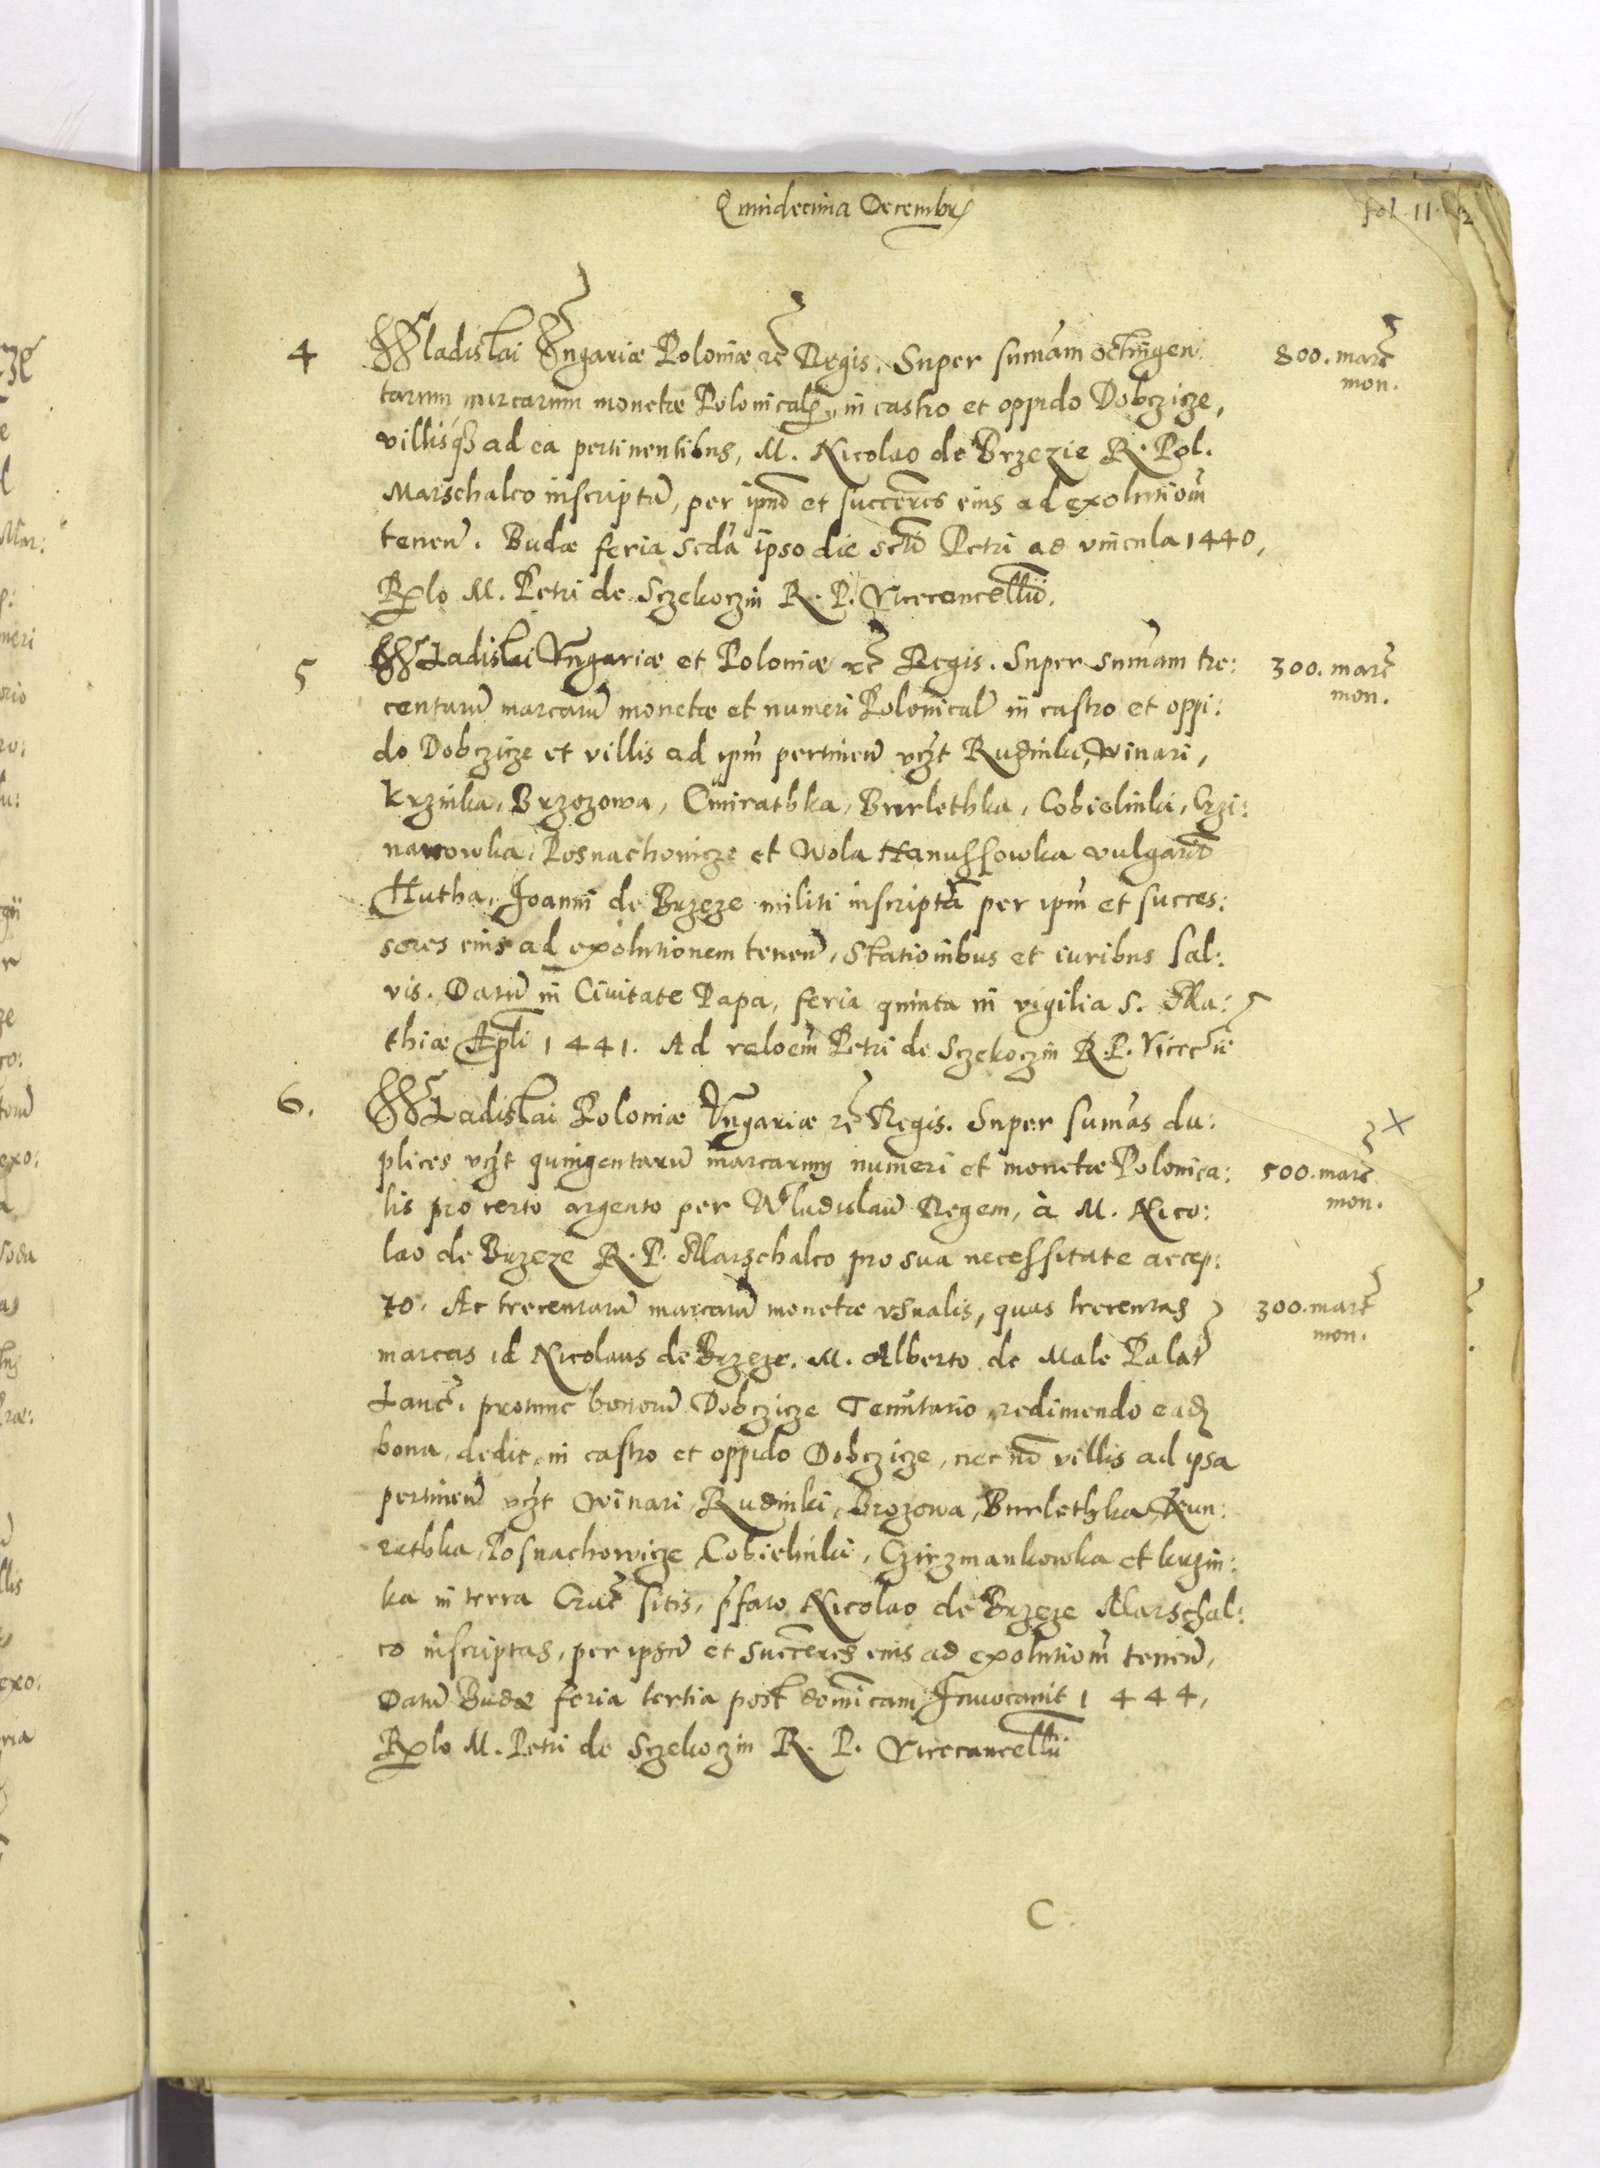 Quindecima Decembr
fol. 11.
4 Wladislai Ungariæ Poloniæ etc Regis. Super sumam octingen
800. marc
tarum marcarum monetæ Polonical, in castro et oppido Dobczicze,
mon.
villisq3 ad ea pertinentibus, M. Nicolao de Brzezie R. Pol.
Marschalco inscriptū, per ipm̄ et succeres eius ad exolutiom
tenen̄. Budæ feria scd̄a ipso die scti Petri ad vincula 1440,
Rlo M. Petri de Sczekoczin R. P. Vicecancellii.
5 WLadislai Ungariæ et Poloniæ etc Regis. Super sumam tre:
300. marc
centarū marcarū monetæ et numeri Polonicalū in castro et oppi:
mon.
do Dobczicze et villis ad ipm pertinen̄ vczt Rudniki, Winari,
Krzinka, Brzozowa, Cunrathka, Burlethka, Cobielniki, Czi:
narowka, Posnachonicze et Wola Hanussowka vulgarit
Hutha, Joanni de Brzeze militi inscriptā per ipm et succes:
sores eius ad exolutionem tenen̄, Stationibus et iuribus sal:
vis. Datū in Civitate Papa, feria quinta in vigilia S. Ma:
thiæ Apli 1441. Ad reloem Petri de Sczekoczin R. P. Vice
6. WLadislai Poloniæ Ungariæ etc Regis. Super sumas du:
plices vczt quingentarū marcarum numeri et monetæ Polonica:
500. marc
lis pro certo argento per Wladislaū Regem, à M. Nico:
mon.
lao de Brzeze R. P. Marschalco pro sua necessitate accep:
to. Ac trecentarū marcarū monetæ usualis, quas trecentas
300. marc
mon.
marcas id Nicolaus de Brzeze. M. Alberto de Male Palat
Lanc. protunc bonorū Dobczicze Tenutario, redimendo ead
bona, dedit, in castro et oppido Dobczicze, nec nō villis ad ipsa
pertinen̄ vczt Winari, Rudniki, Brozowa, Burlethka, Kun:
rathka, Posnachowicze, Cobielniki, Czirzmankowka et Krzin:
ka in terra Crac sitis, p̄fato Nicolao de Brzeze Marschal:
co inscriptas, per ipsū et succeres eius ad exolutiom tenen̄,
Datū Budæ feria tertia post dominicam Invocavit 1444,
Rlo M. Petri de Sczekoczin R. P. Vicecancellii
C.